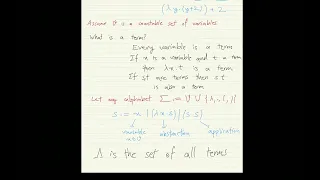 (λ y. (y+2)) + 2
Assume V is a countable set of variables
what is a term?
Every variable is a term
If x is a variable and t a term
then λx.t is a term
If s,t are terms then s t
is also a term
Let my alphabet Σ := V ∪ {λ, (, )}
s := x | (λx.s) | (s s)
variable abstraction application
x ∈ V
Λ is the set of all terms